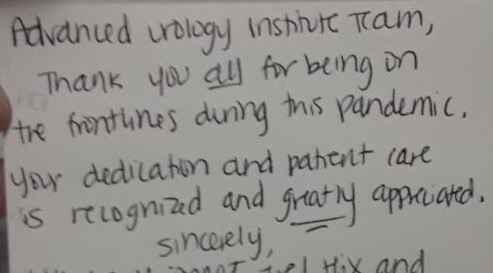 Advanced urology institute Team,
Thank you all for being on
the frontlines during this pandemic.
your dedication and patient care
is recognized and greatly appreciated.
sincerely,
Hix and